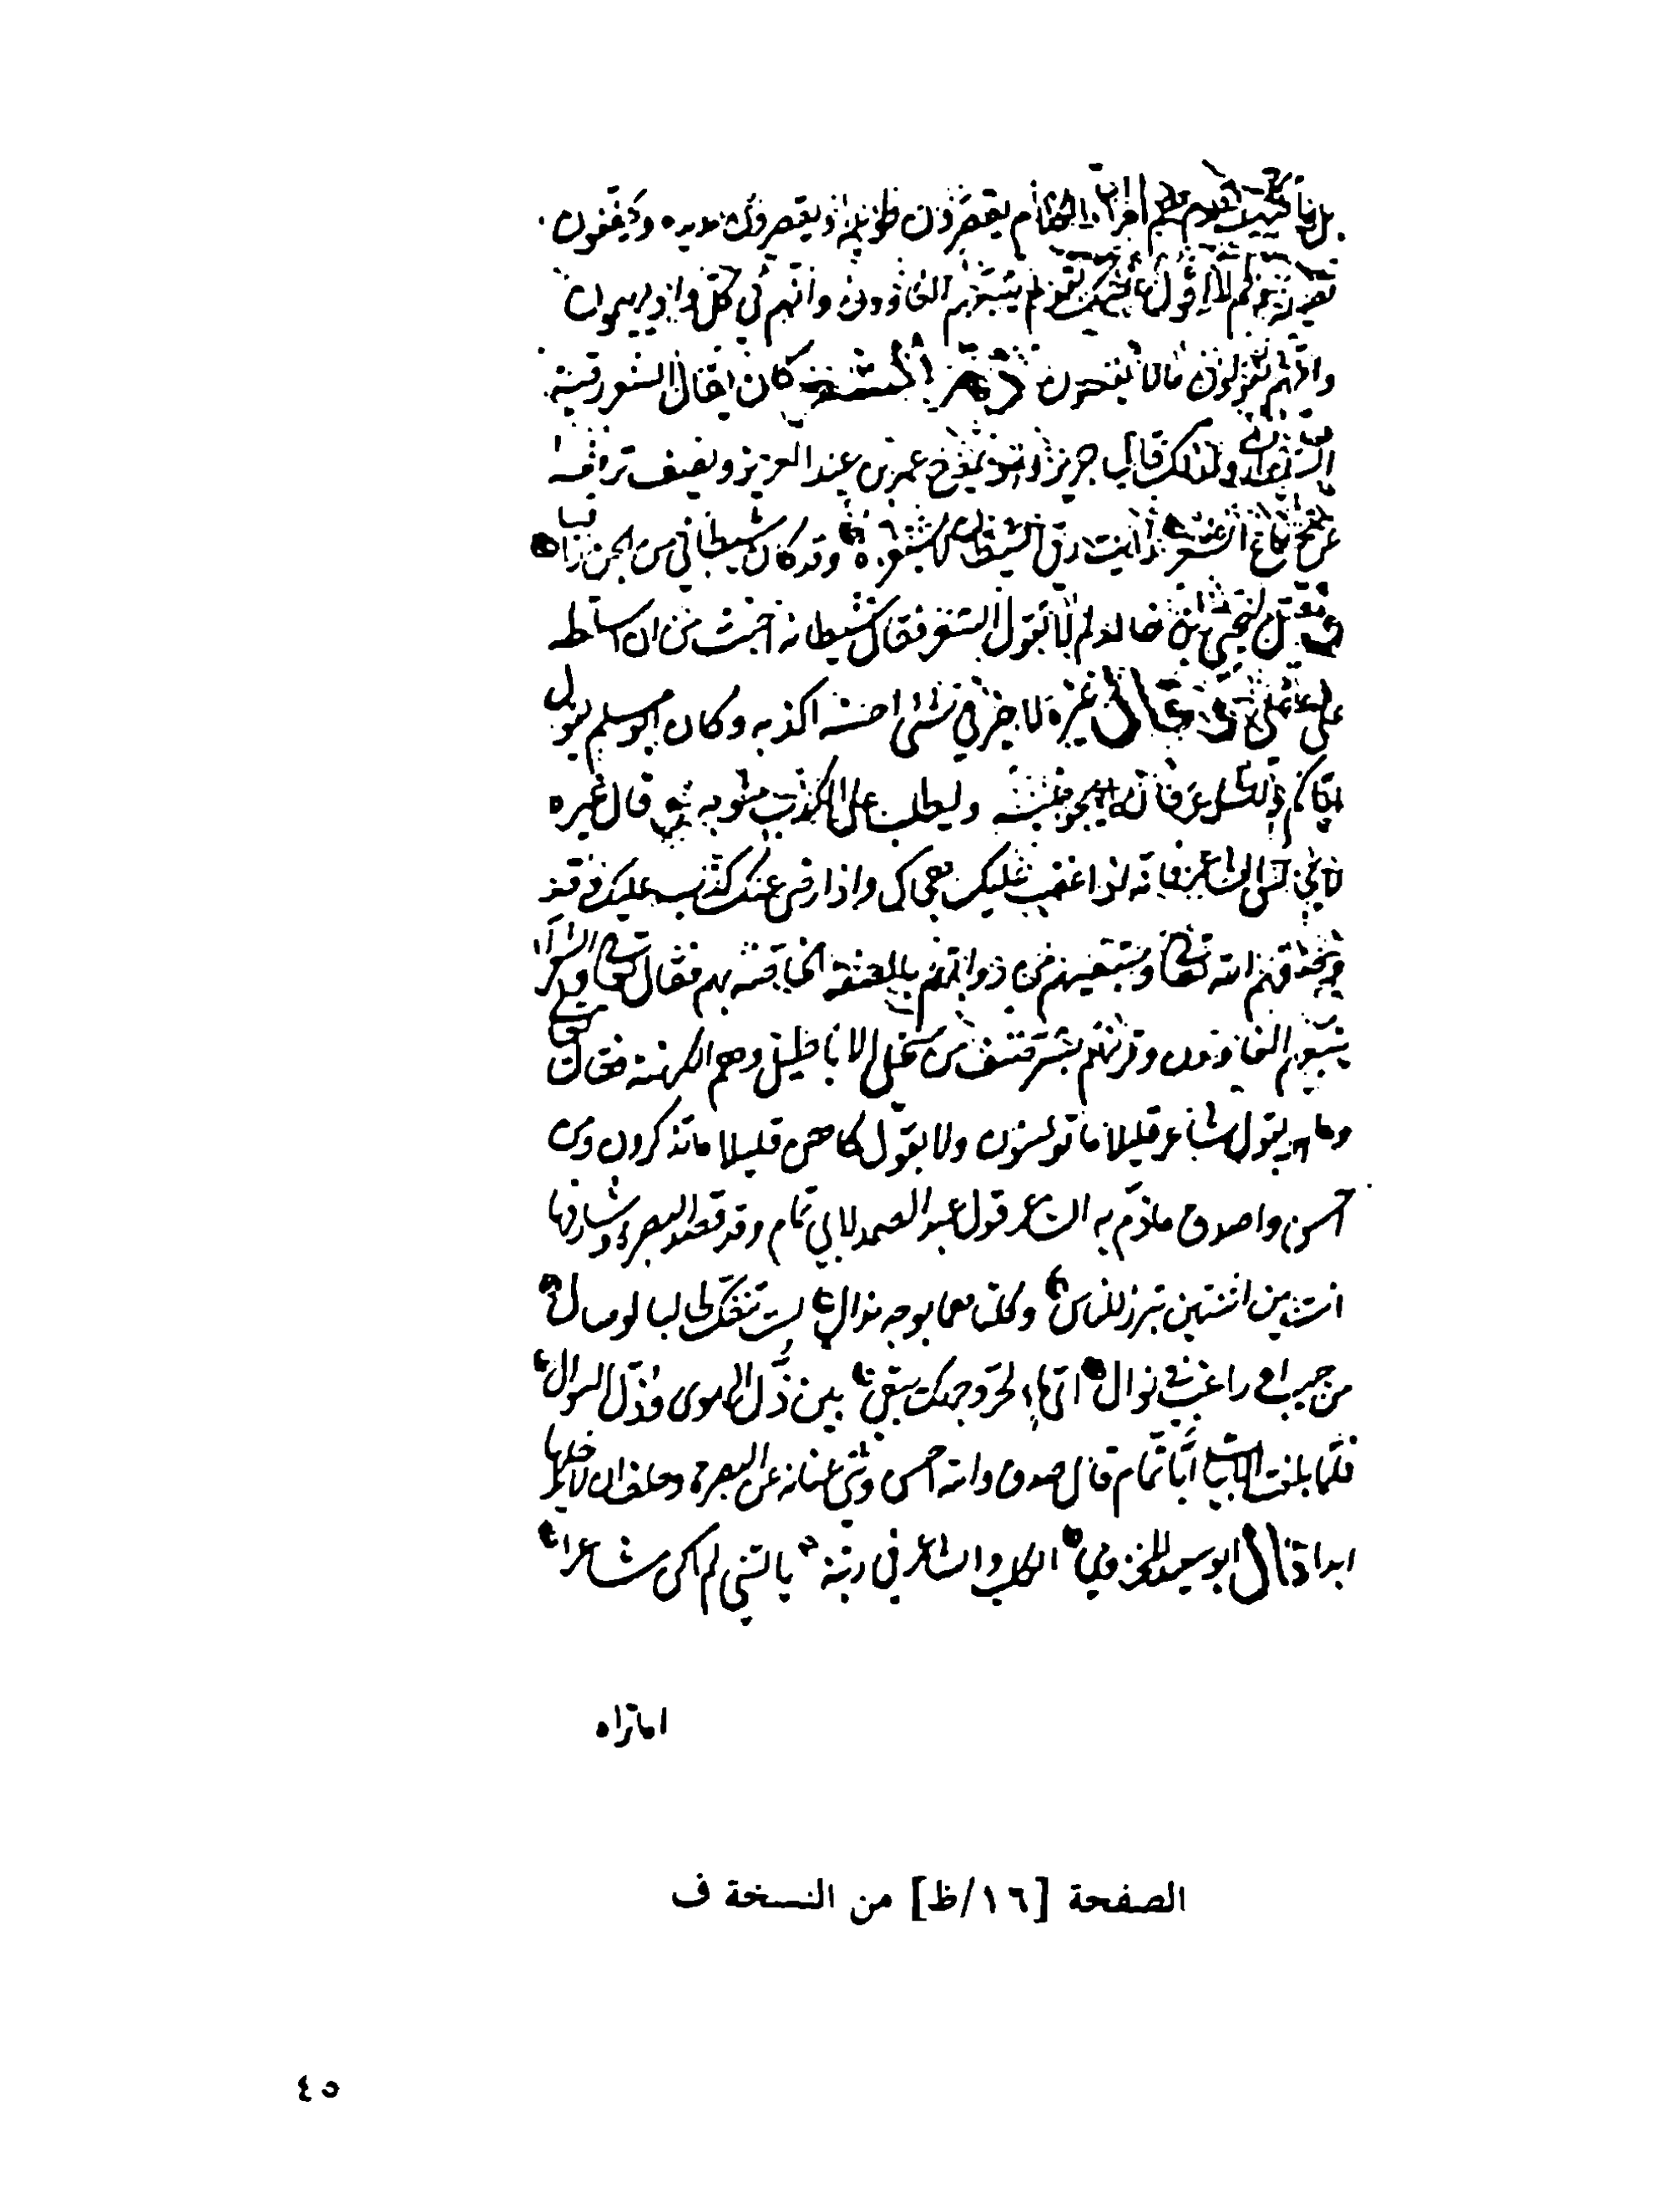 بقوم هم امراء الكلام يقصرون طويله ويقصرون مديده ويخففون
ثقيله ولم لا اقول ما ظنك بقوم يتبعهم الغاوون وانهم في كل واد يهيمون
وانهم يقولون مالا يفعلون ذم الشعر كان يقال الشعر رقية
الشيطان ولذلك قال جرير وهو يمدح عمر بن عبد العزيز ويصف ترفعه
عن سماع الشعر رايت رقى الشيطان لا تستفزه وقد كان شيطاني من الجن راقيا
وقيل ليحيى بن خالد لم لا تقول الشعر فقال شيطانه اخبث من ان اسلطه
على عقلي وقال غيره لا خير في شئ احسنه اكذبه وكان ابو مسلم يقول
اياكم والشاعر فانه يهجو جليسه ويطلب على الكذب مثوبه وقال غيره
لا تجالس الشاعر فانه اذا غضب عليك هجاك واذا رضى عنك كذب عليك وقد
الله تعالى ومتبعيهم فقال تعالى والشعراء
يتبعهم الغاوون وقرنهم الاباطيل وهم الكهنة فقال تعالى
وما هو بقول شاعر قليلا ما تؤمنون ولا بقول كاهن قليلا ما تذكرون ومن
احسن واصدق ما ذم به الشاعر قول عبد الصمد لابي تمام وقد قصد البصرة وشارفها
انت بين اثنتين تبرز للناس وكلتاهما بوجه مذال لست تنفك طالبا لوصال
من حبيب او راغبا في نوال اي ماء لحر وجهك يبقى بين ذل الهوى وذل السؤال
فلما بلغت الابيات ابا تمام قال صدق والله واحسن وثنى عنانه عن البصرة وحلف ان لا يدخلها
ابدا وقال ابو سعيد المخزومي الكلب والشاعر في رتبة يا ليتني لم اكن شاعرا
اما تراه
الصفحة [١٦/ظ] من النسخة ف
٤٥